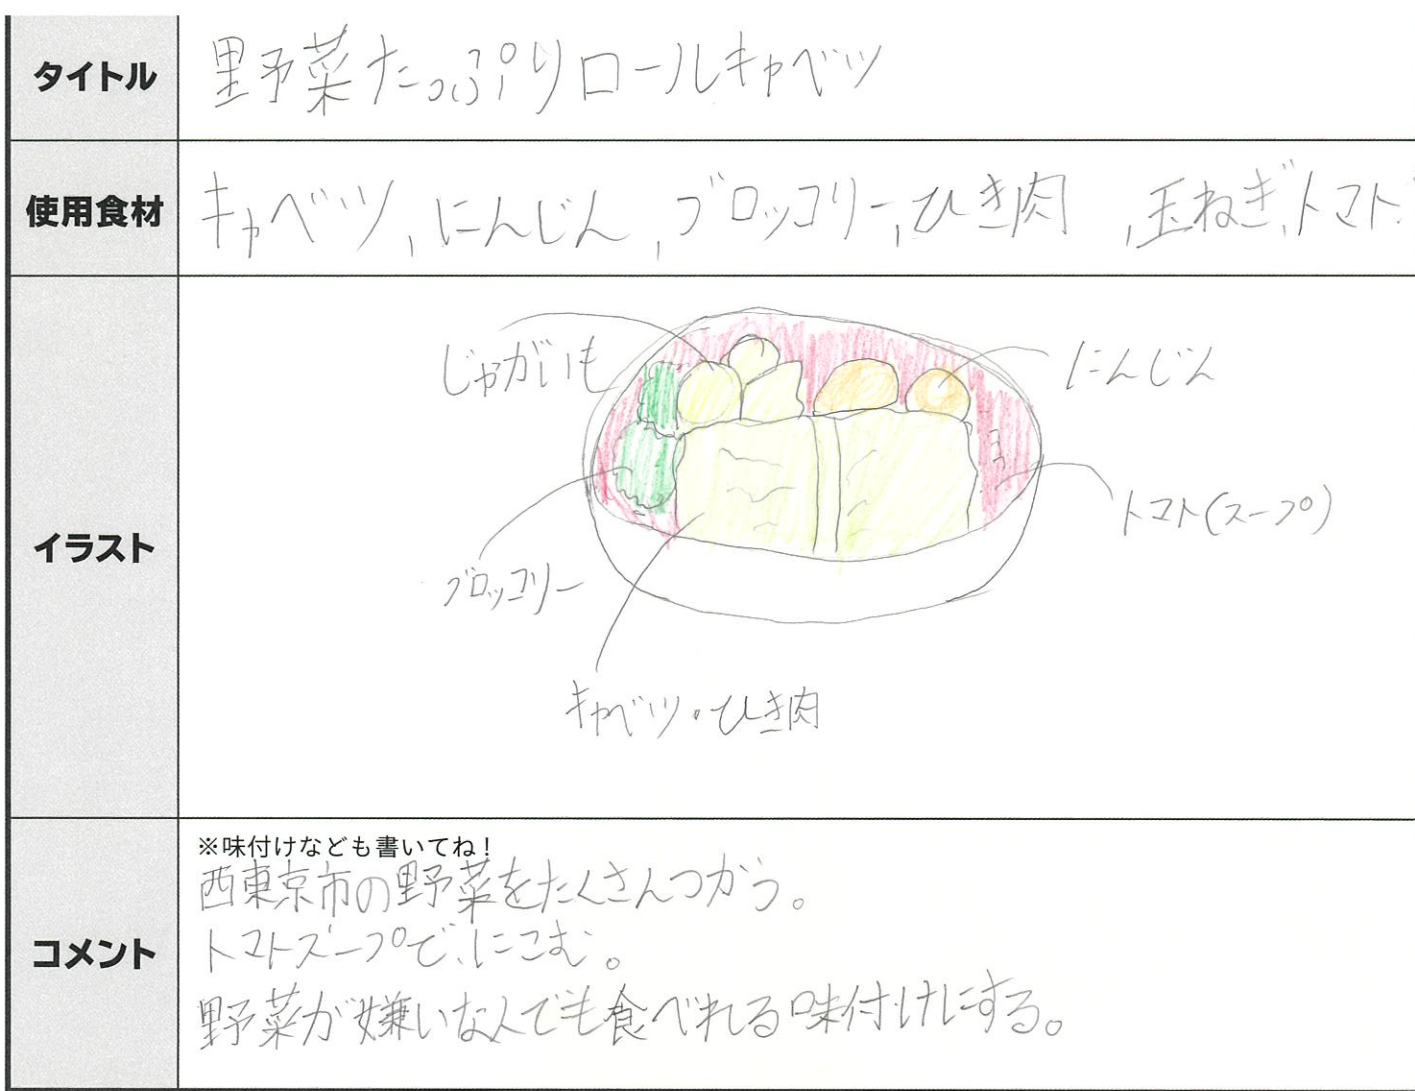 タイトル
野菜たっぷりロールキャベツ
使用食材
キャベツ,にんじん,ブロッコリー,ひき肉 ,玉ねぎ,トマト
イラスト
じゃがいも
にんじん
トマト(スープ)
ブロッコリー
キャベツ・ひき肉
コメント
※味付けなども書いてね!
西東京市の野菜をたくさんつかう。
トマトスープで、にこむ。
野菜が嫌いな人でも食べれる味付けにする。